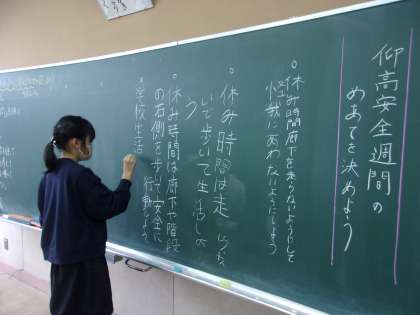 仰高安全週間の
めあてを決めよう
。休み時間廊下を走らないようにして
怪我にあわないようにしましょう
。休み時間は走らな
いで歩いて生活しよ
う
。休み時間は廊下や階段
の右側を歩いて安全に
行動しよう
。学校生活